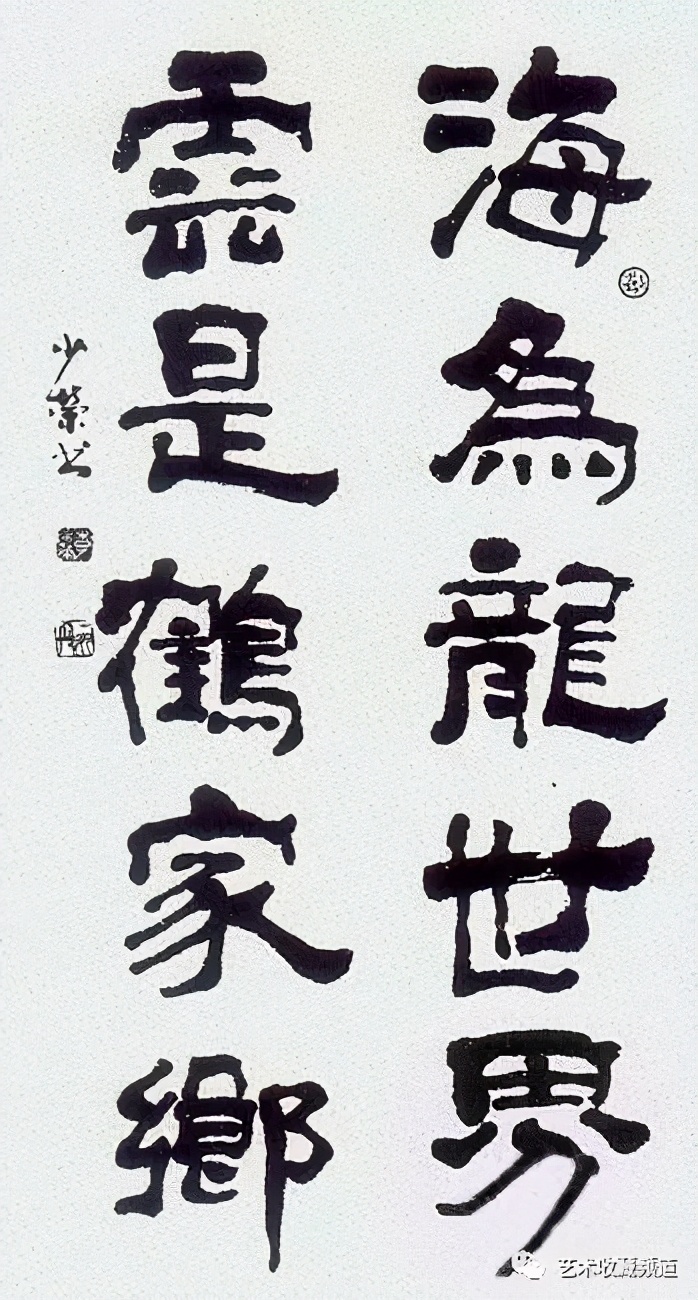 海為龍世界
雲是鶴家鄉
少榮书
艺术收藏频道